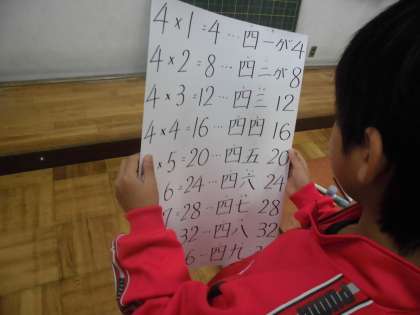 4×1=4…四一が4
4×2=8…四二が8
4×3=12…四三 12
4×4=16…四四 16
×5=20…四五 20
6=24…四六 24
7=28…四七 28
32…四八 32
6…四九 3